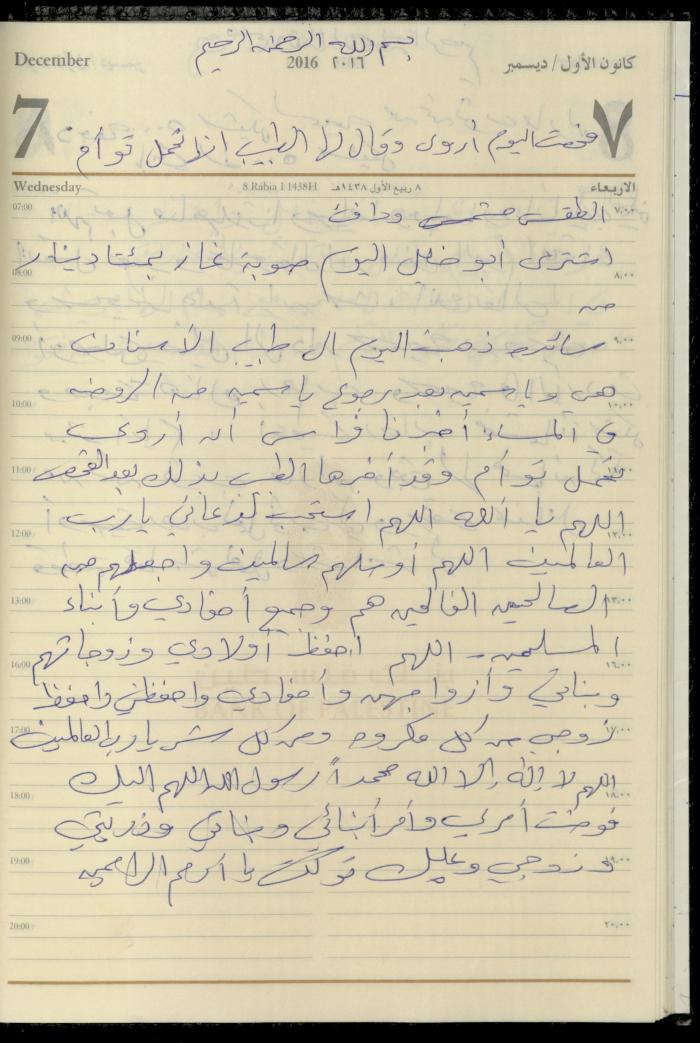 بسم الله الرحمن الرحيم
December 2016 ٢٠١٦ كانون الأول/ ديسمبر
7 ٧
فحصت اليوم أروى وقال لها الطبيب انها تحمل توأم
Wednesday 8 Rabia I 1438H ٨ ربيع الأول ١٤٣٨هـ الاربعاء
07:00 الطقس مشمس ودافئ ٧,٠٠
اشترى أبو خليل اليوم صوبة غاز بمئتا دينار
08:00 ٨,٠٠
من
09:00 سائده ذهبت اليوم الى طبيب الأسنان ٩,٠٠
هي وياسمين بعد رجوع ياسمين من الروضه
10:00 ١٠,٠٠
في المساء أخبرنا فراس أن أروى
11:00 تحمل توأم وقد أخبرها الطبيب بذلك بعد الفحص ١١,٠٠
اللهم يا الله اللهم استجب لدعائي يا رب
12:00 ١٢,٠٠
العالمين اللهم أوصلهم سالمين واجعلهم من
13:00 الصالحين الفالحين هم وجميع أحفادي وأبناء ١٣,٠٠
المسلمين - اللهم احفظ أولادي وزوجاتهم
16:00 ١٦,٠٠
وبناتي وأزواجهن وأحفادي واحفظني واحفظ
17:00 زوجي من كل مكروه ومن كل شر يا رب العالمين ١٧,٠٠
BANK OF PALESTINE
اللهم لا إله إلا الله محمداً رسول الله اللهم اليك
18:00 ١٨,٠٠
فوضت أمري وأمر أبنائي وبناتي وذريتي
19:00 وزوجي وعليك توكلت يا أرحم الراحمين ١٩,٠٠
20:00 ٢٠,٠٠